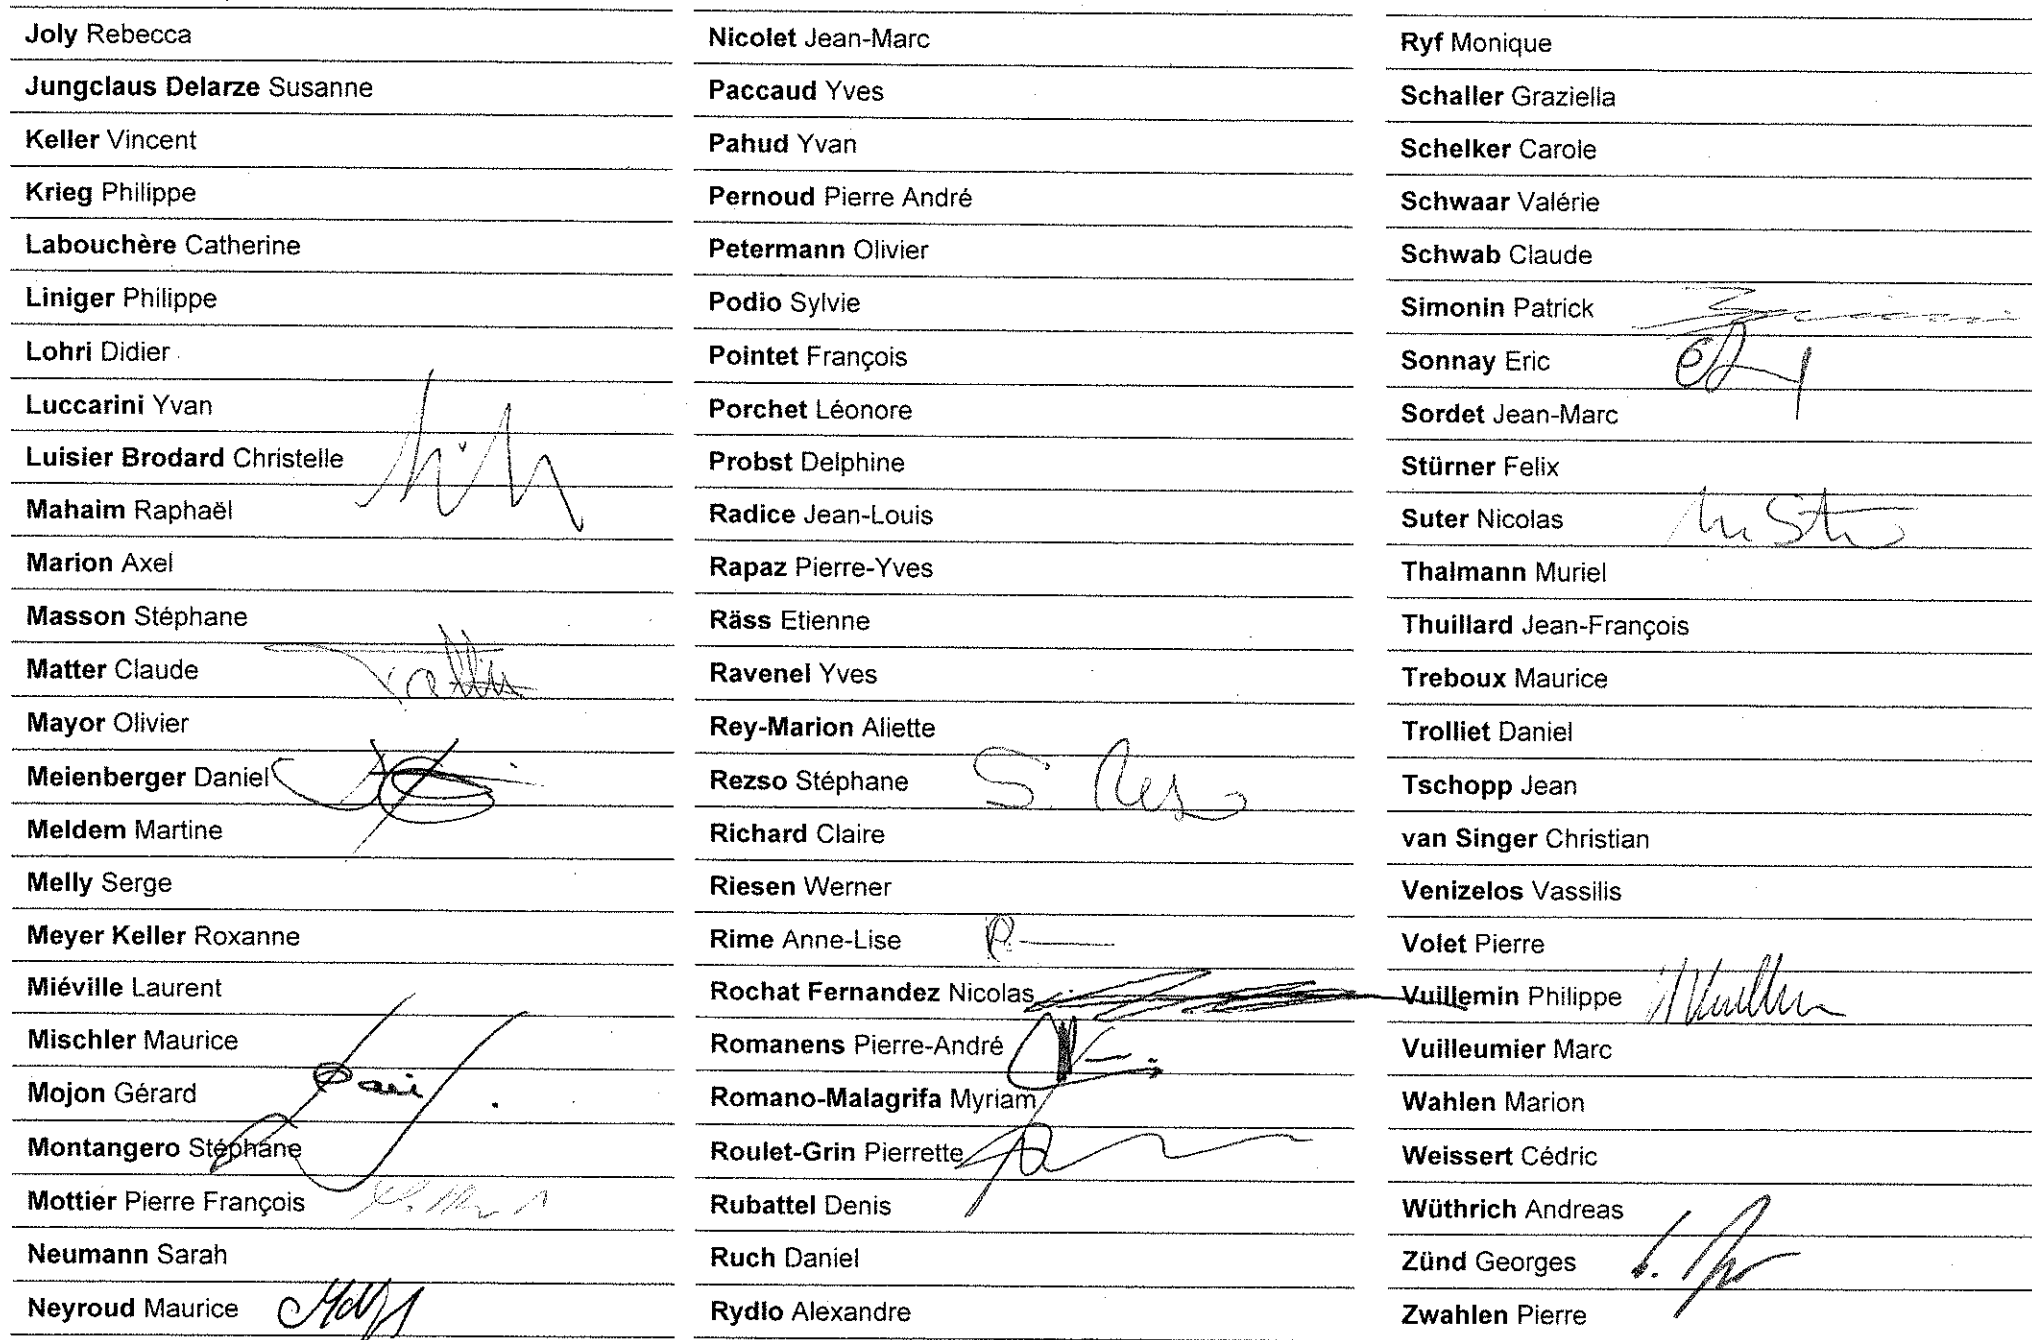 Joly Rebecca
Jungclaus Delarze Susanne
Keller Vincent
Krieg Philippe
Labouchère Catherine
Liniger Philippe
Lohri Didier
Luccarini Yvan
Luisier Brodard Christelle
Mahaim Raphaël
Marion Axel
Masson Stéphane
Matter Claude
Mayor Olivier
Meienberger Daniel
Meldem Martine
Melly Serge
Meyer Keller Roxanne
Miéville Laurent
Mischler Maurice
Mojon Gérard
Montangero Stéphane
Mottier Pierre François
Neumann Sarah
Neyroud Maurice
Nicolet Jean-Marc
Paccaud Yves
Pahud Yvan
Pernoud Pierre André
Petermann Olivier
Podio Sylvie
Pointet François
Porchet Léonore
Probst Delphine
Radice Jean-Louis
Rapaz Pierre-Yves
Räss Etienne
Ravenel Yves
Rey-Marion Aliette
Rezso Stéphane
Richard Claire
Riesen Werner
Rime Anne-Lise
Rochat Fernandez Nicolas
Romanens Pierre-André
Romano-Malagrifa Myriam
Roulet-Grin Pierrette
Rubattel Denis
Ruch Daniel
Rydlo Alexandre
Ryf Monique
Schaller Graziella
Schelker Carole
Schwaar Valérie
Schwab Claude
Simonin Patrick
Sonnay Eric
Sordet Jean-Marc
Stürner Felix
Suter Nicolas
Thalmann Muriel
Thuillard Jean-François
Treboux Maurice
Trolliet Daniel
Tschopp Jean
van Singer Christian
Venizelos Vassilis
Volet Pierre
Vuillemin Philippe
Vuilleumier Marc
Wahlen Marion
Weissert Cédric
Wüthrich Andreas
Zünd Georges
Zwahlen Pierre